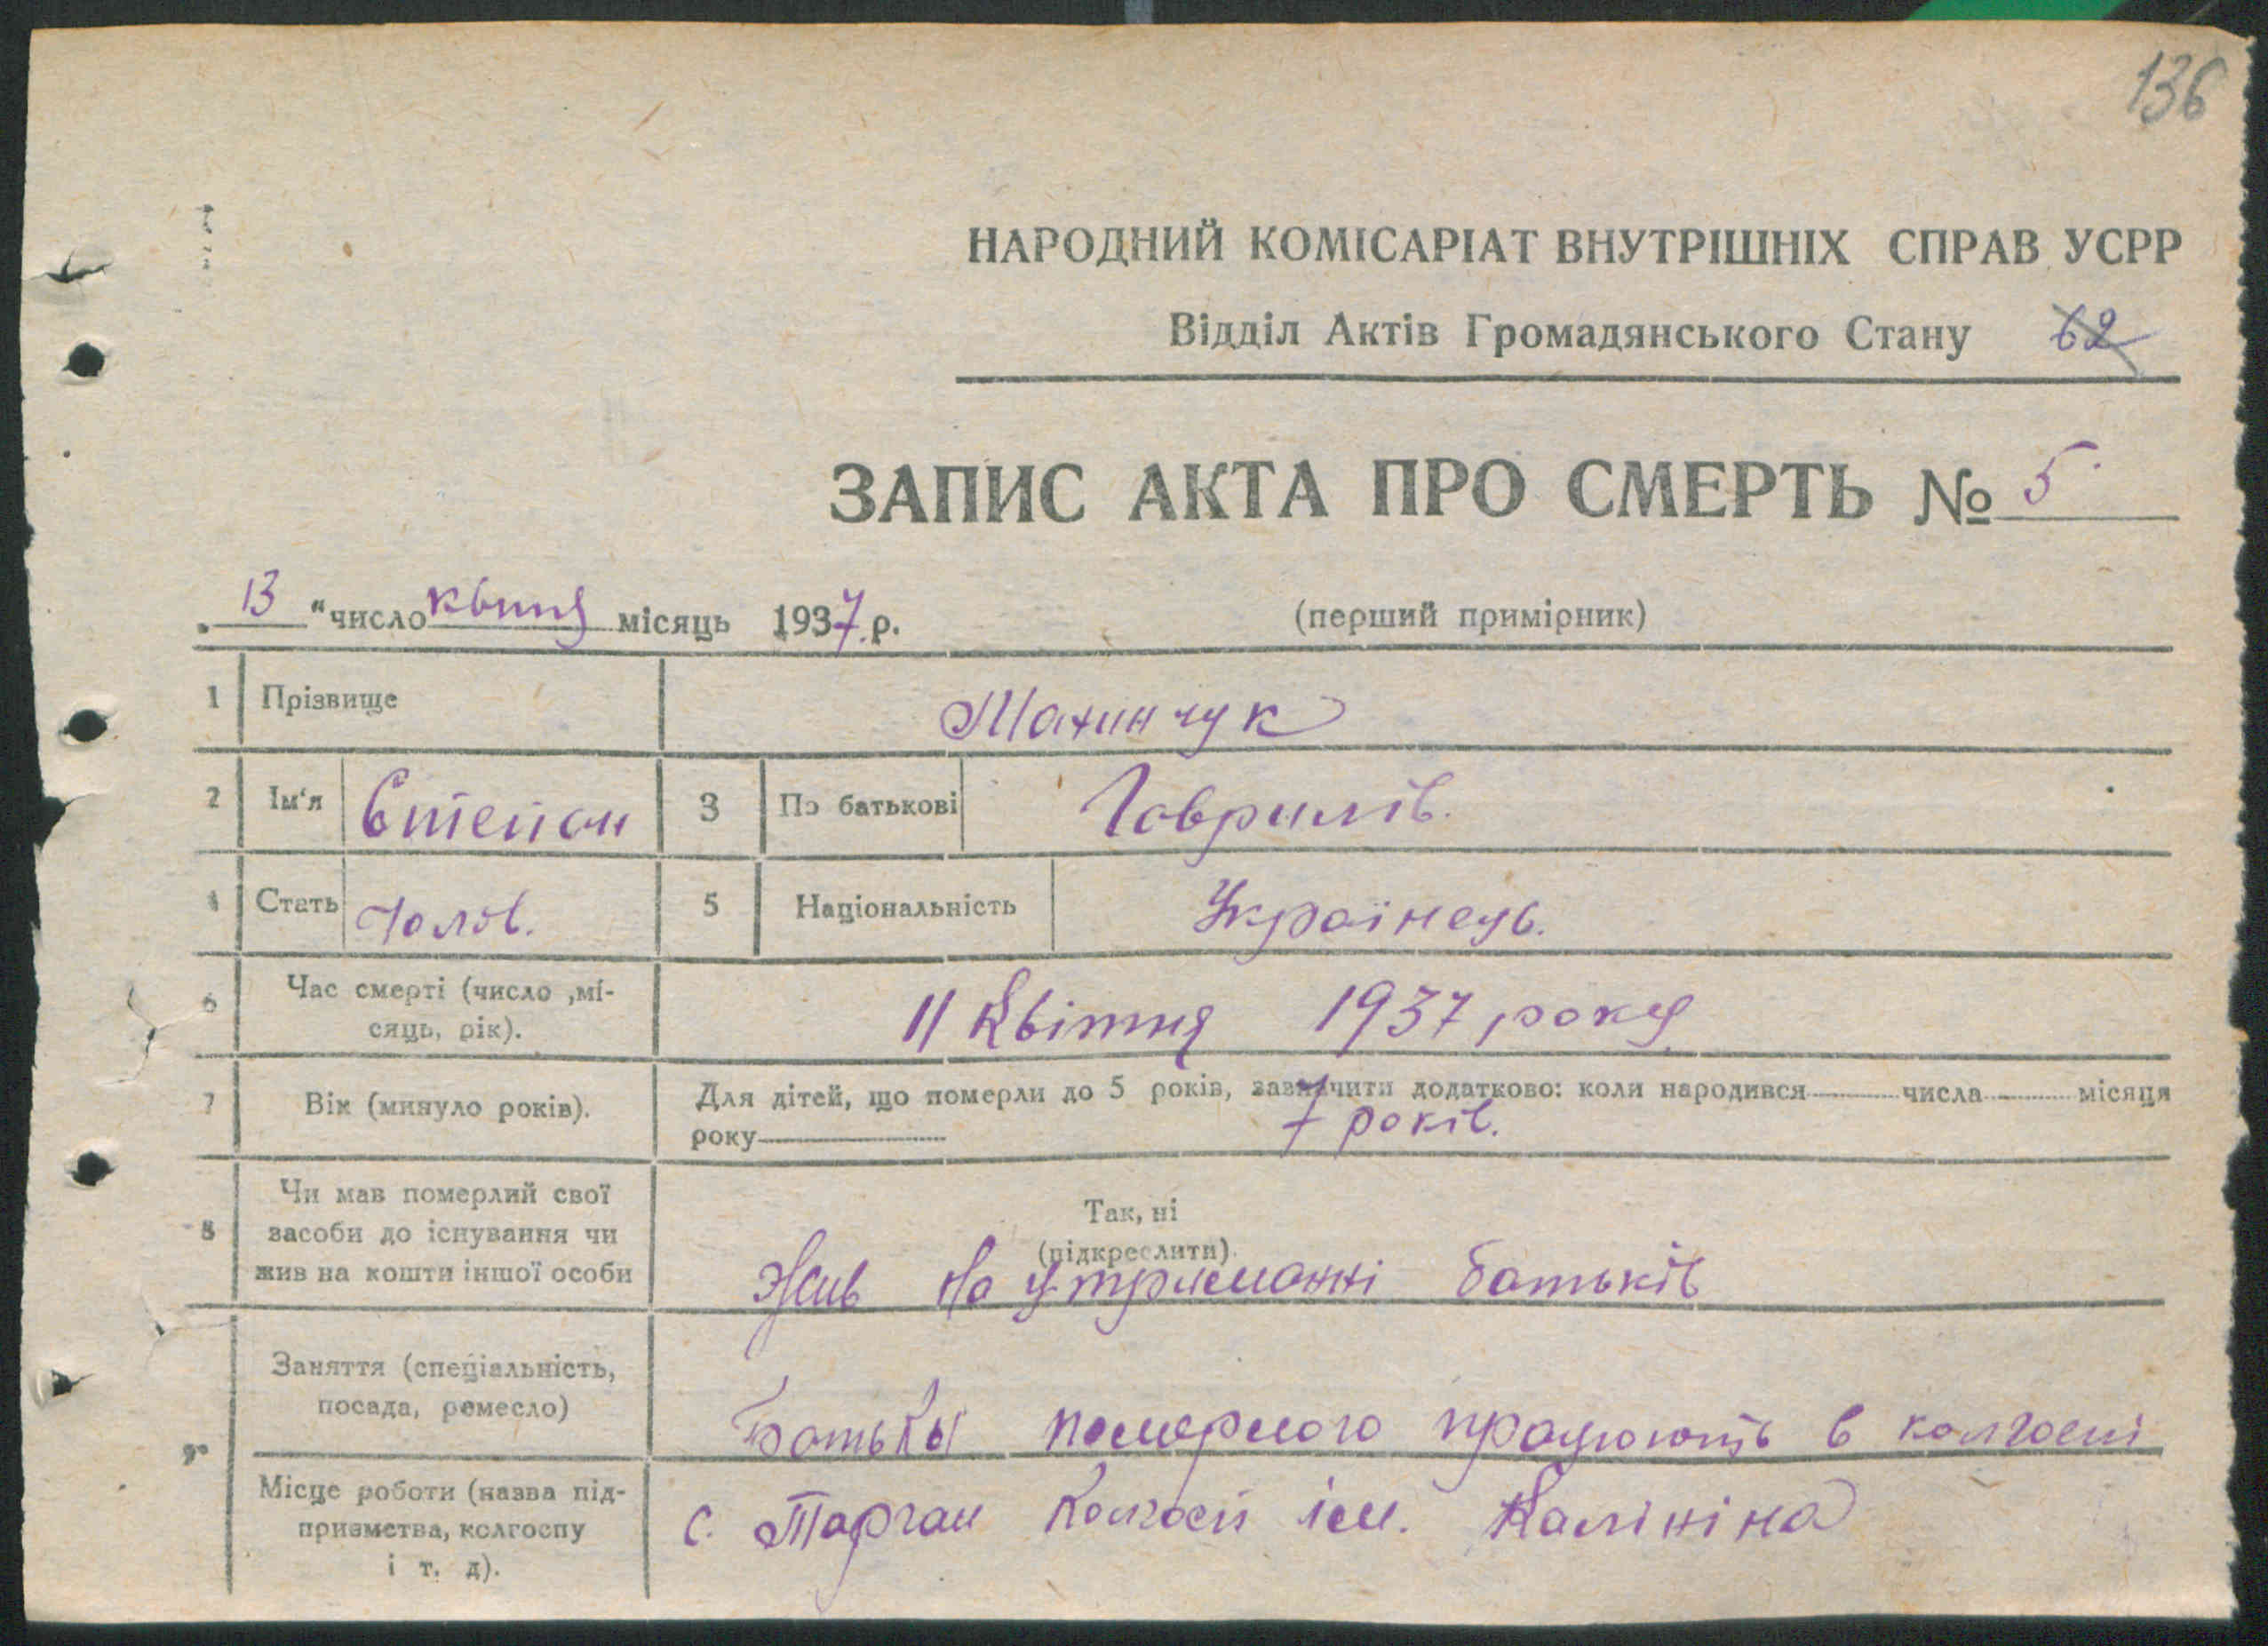 136
НАРОДНИЙ КОМІСАРІАТ ВНУТРІШНІХ СПРАВ УСРР
Відділ Актів Громадянського Стану 62
ЗАПИС АКТА ПРО СМЕРТЬ № 5
„13“ число квітня місяць 1937 р. (перший примірник)
1 Прізвище Махинчук
2 Ім'я Степан 3 По батькові Гаврилів.
4 Стать Чолов. 5 Національність Українець.
6 Час смерті (число ,мі-
сяць, рік). 11 Квітня 1937 року
7 Вік (минуло років). Для дітей, що померли до 5 років, зазначити додатково: коли народився числа місяця
року 7 років.
8 Чи мав померлий свої
засоби до існування чи
жив на кошти іншої особи
Так, ні
(підкреслити).
Жив на утриманні батьків
9 Заняття (спеціальність,
посада, ремесло)
Батьки померлого працюють в колгоспі
Місце роботи (назва під-
приємства, колгоспу
і т. д).
с. Тарган Колгосп ім. Калініна